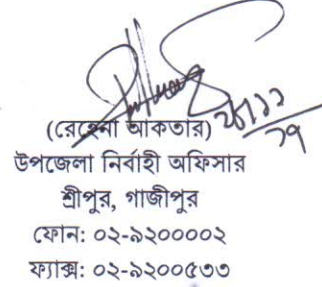 (রেহেনা আকতার)
উপজেলা নির্বাহী অফিসার
শ্রীপুর, গাজীপুর
ফোন: ০২-৯২০০০০২
ফ্যাক্স: ০২-৯২০০৫৩৩